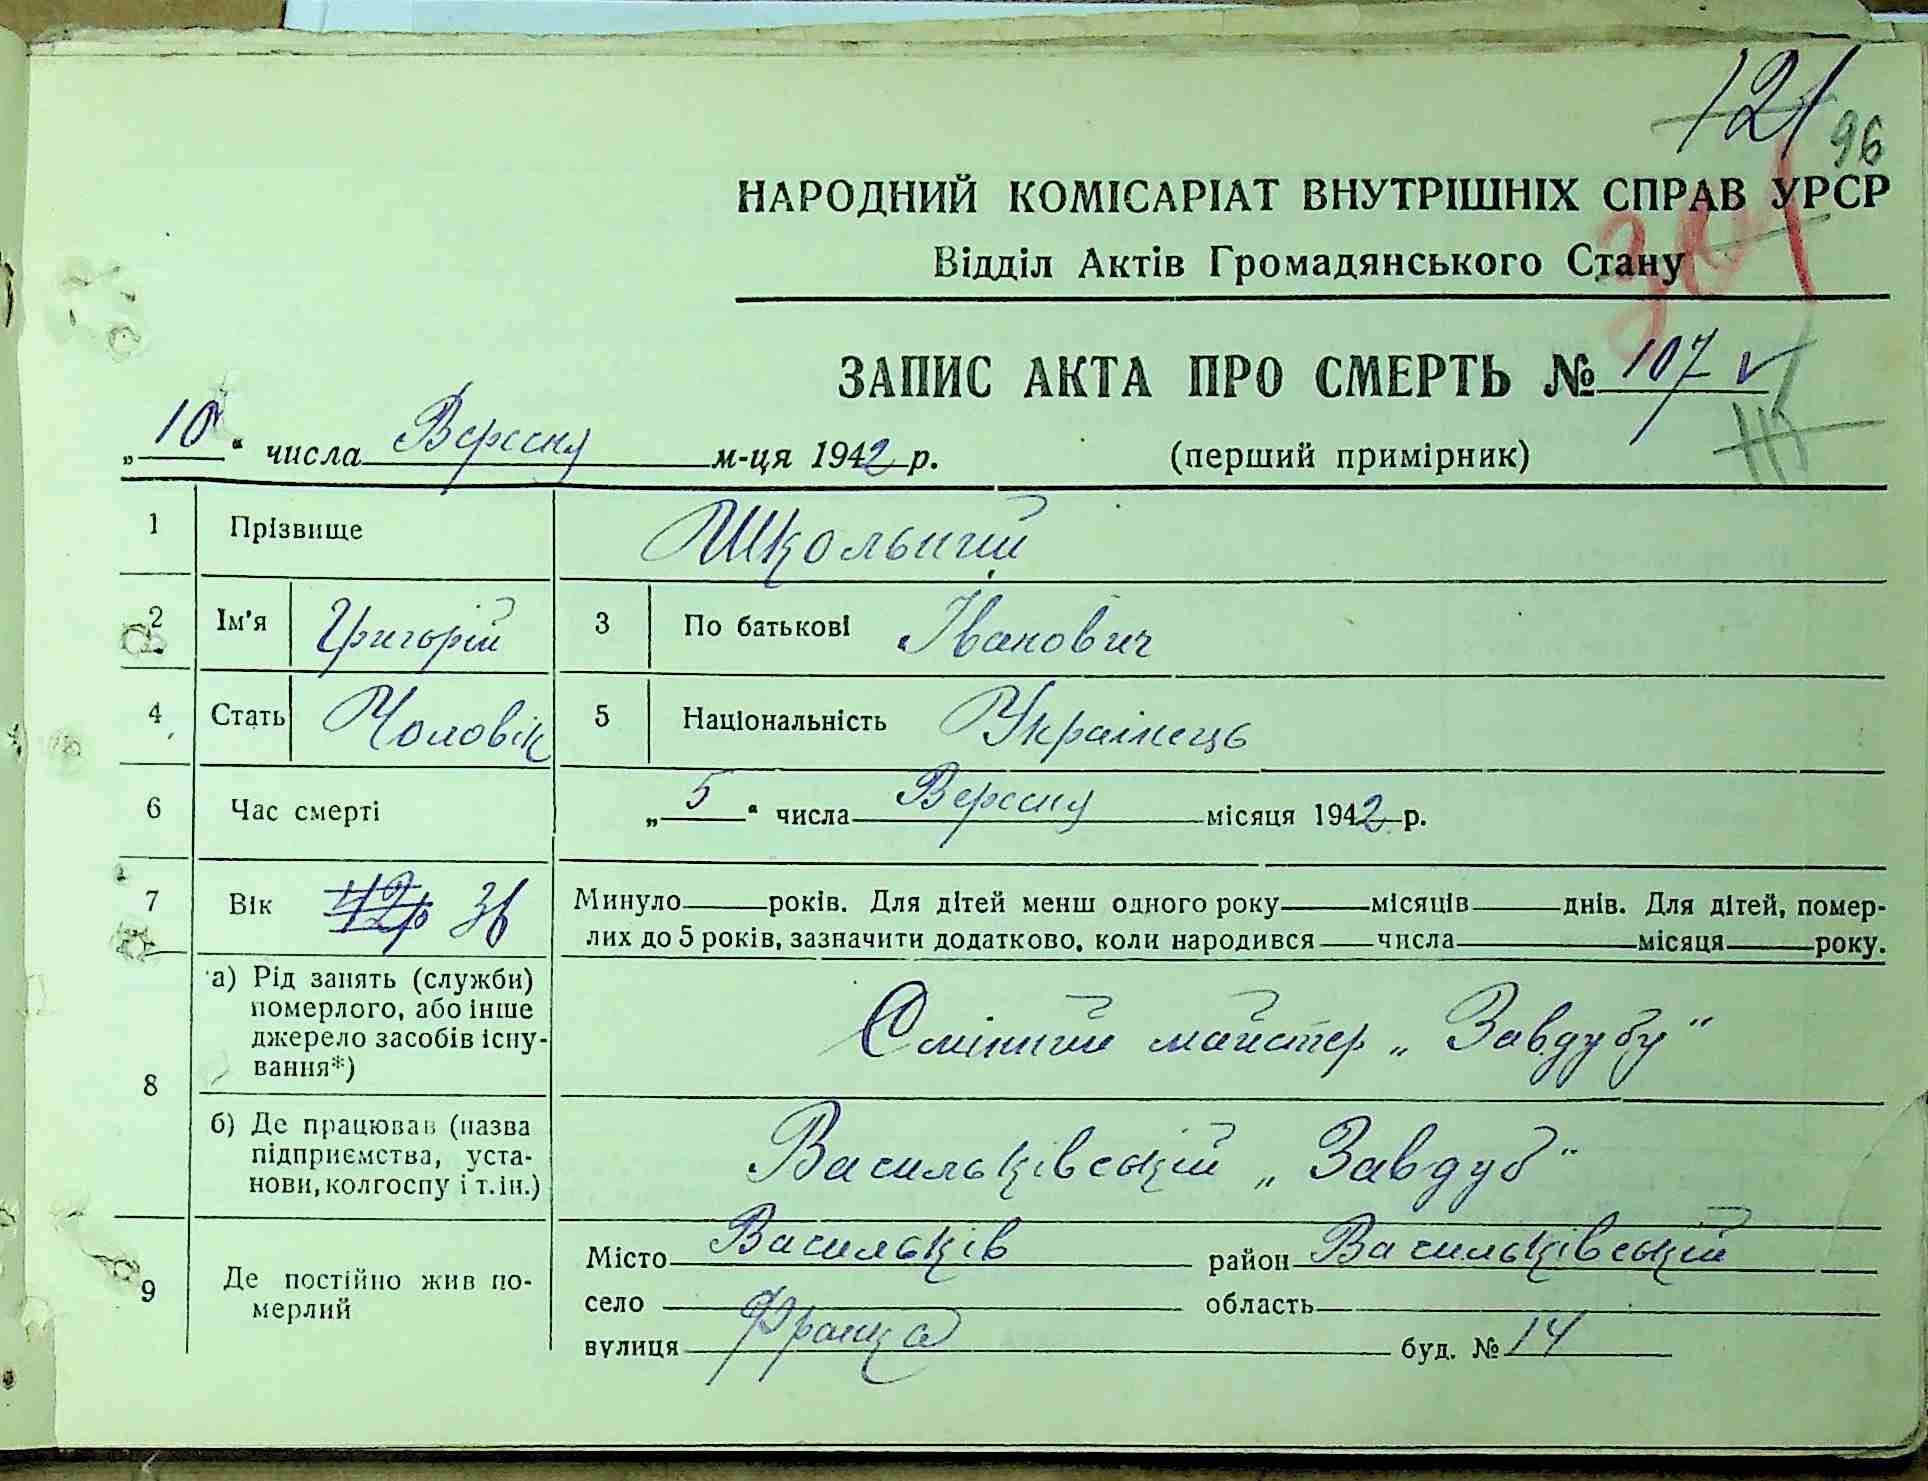 121
96
НАРОДНИЙ КОМІСАРІАТ ВНУТРІШНІХ СПРАВ УРСР
Відділ Актів Громадянського Стану
ЗАПИС АКТА ПРО СМЕРТЬ № 107 v
„10“ числа Вересня м-ця 1942 р. (перший примірник)
1 Прізвище Школьний
2 Ім'я Григорій 3 По батькові Іванович
4 Стать Чоловік 5 Національність Українець
6 Час смерті „5“ числа Вересня місяця 1942 р.
7 Вік Минуло років. Для дітей менш одного року місяців днів. Для дітей, помер-
лих до 5 років, зазначити додатково, коли народився числа місяця року.
8 а) Рід занять (служби)
померлого, або інше
джерело засобів існу-
вання*)
Смінний майстер „Завдубу“
б) Де працював (назва
підприємства, уста-
нови, колгоспу і т.ін.)
Васильківський „Завдуб“
9 Де постійно жив по-
мерлий
Місто Васильків район Васильківський
село область
вулиця Франка буд. № 14